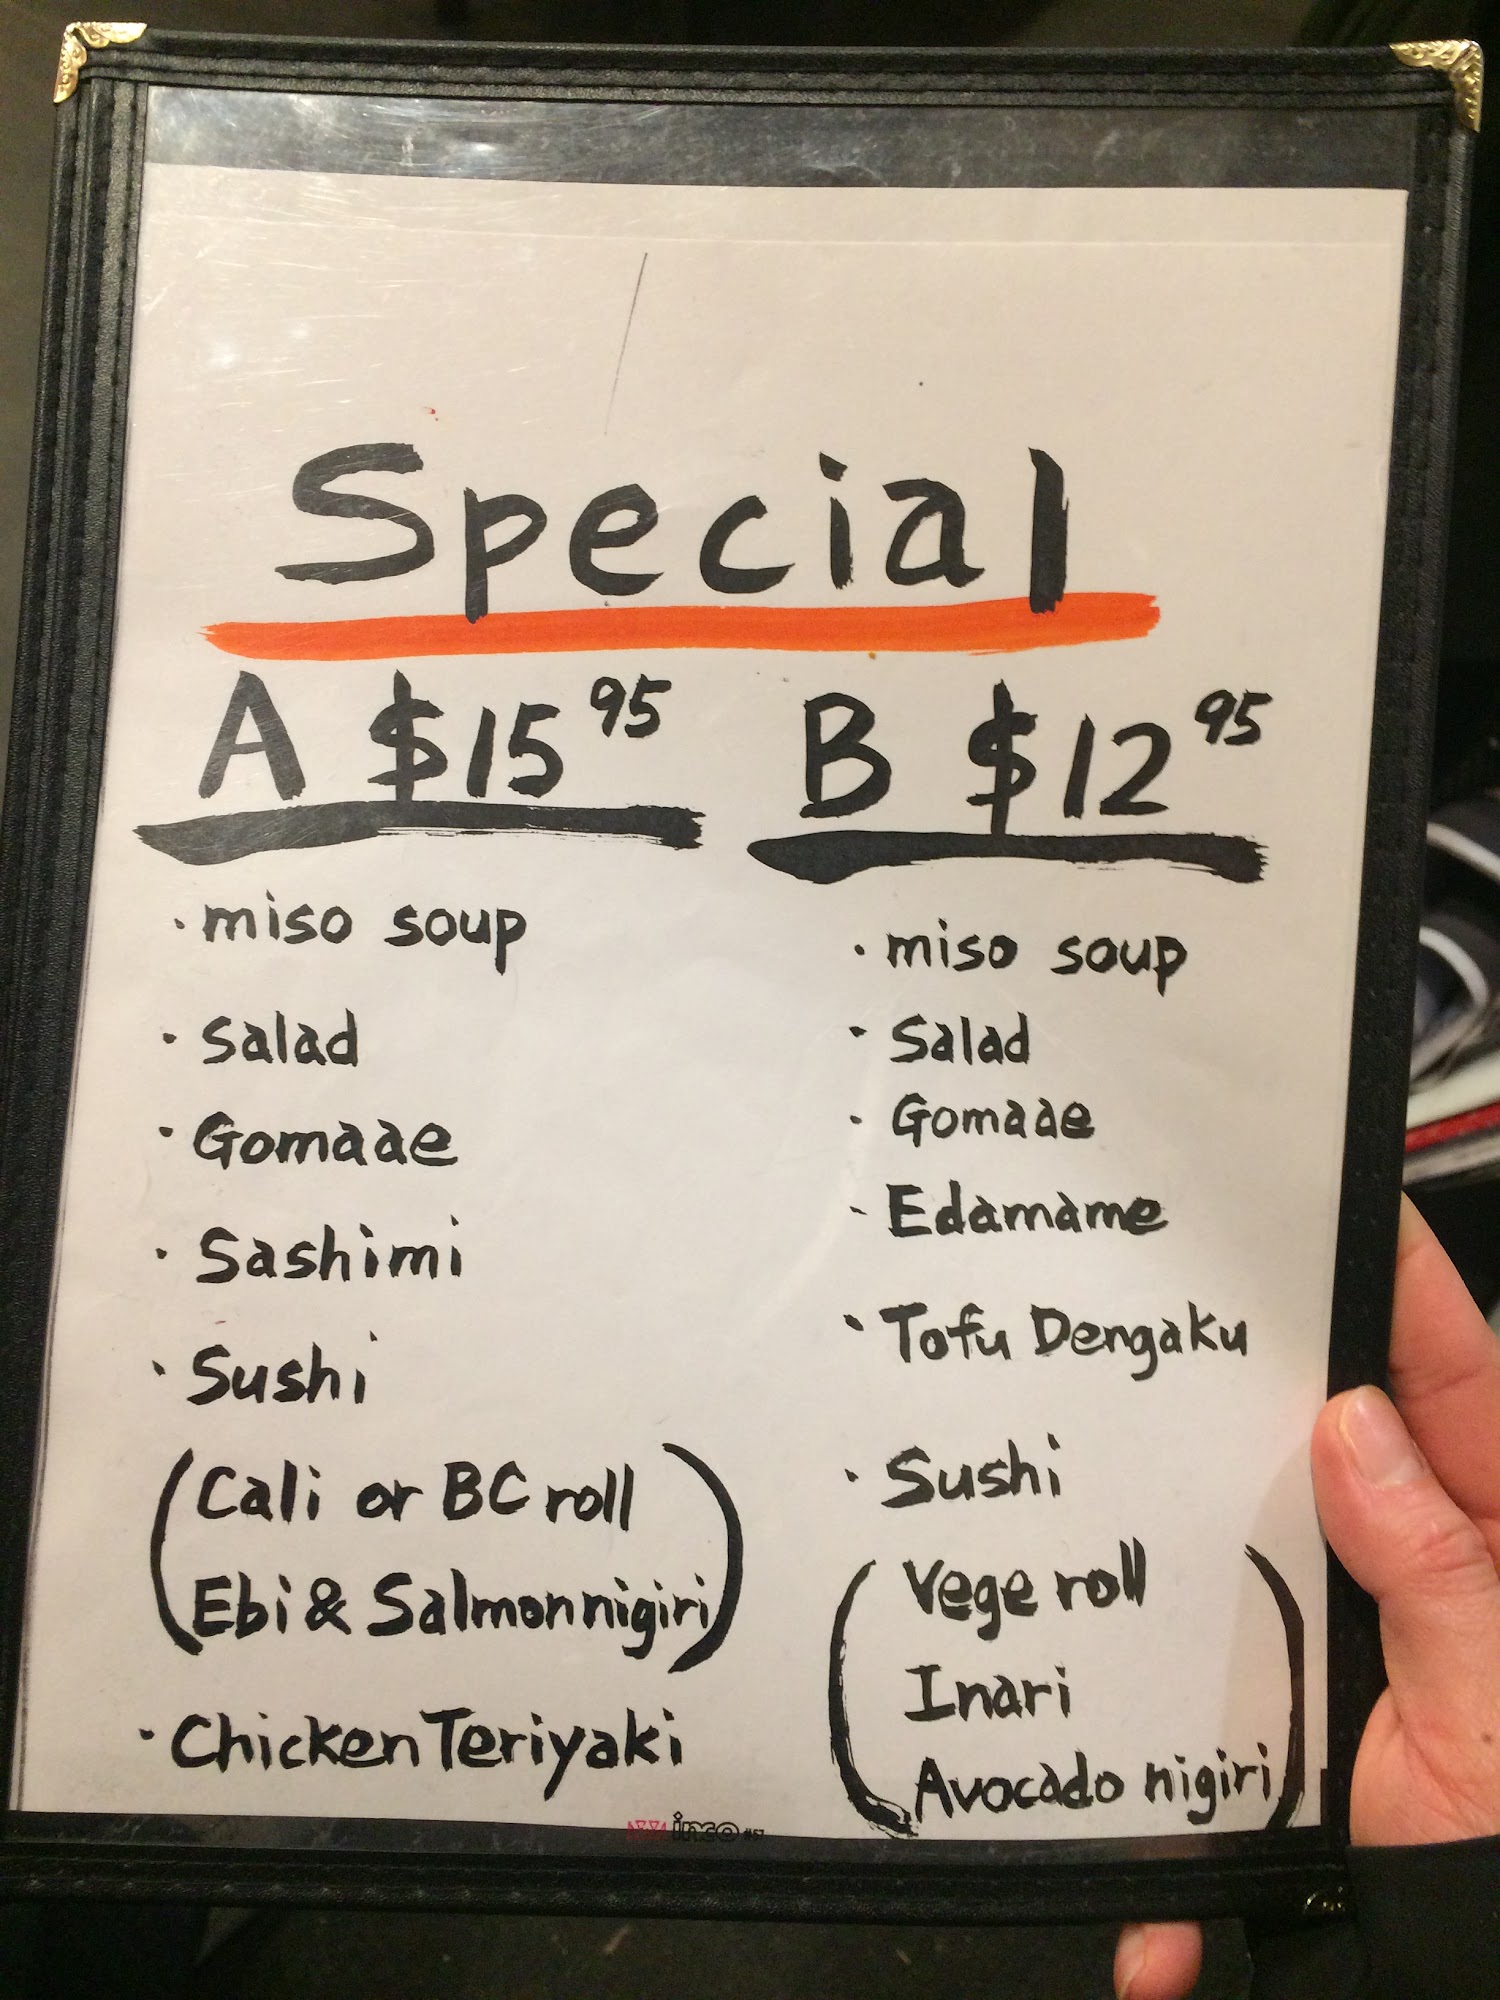 Special
A $15 95
· miso soup
· Salad
· Gomaae
· Sashimi
· Sushi
(Cali or BC roll
Ebi & Salmon nigiri)
· Chicken Teriyaki
B $12 95
· miso soup
· Salad
· Gomaae
- Edamame
· Tofu Dengaku
· Sushi
(Vege roll
Inari
Avocado nigiri)
inco #57